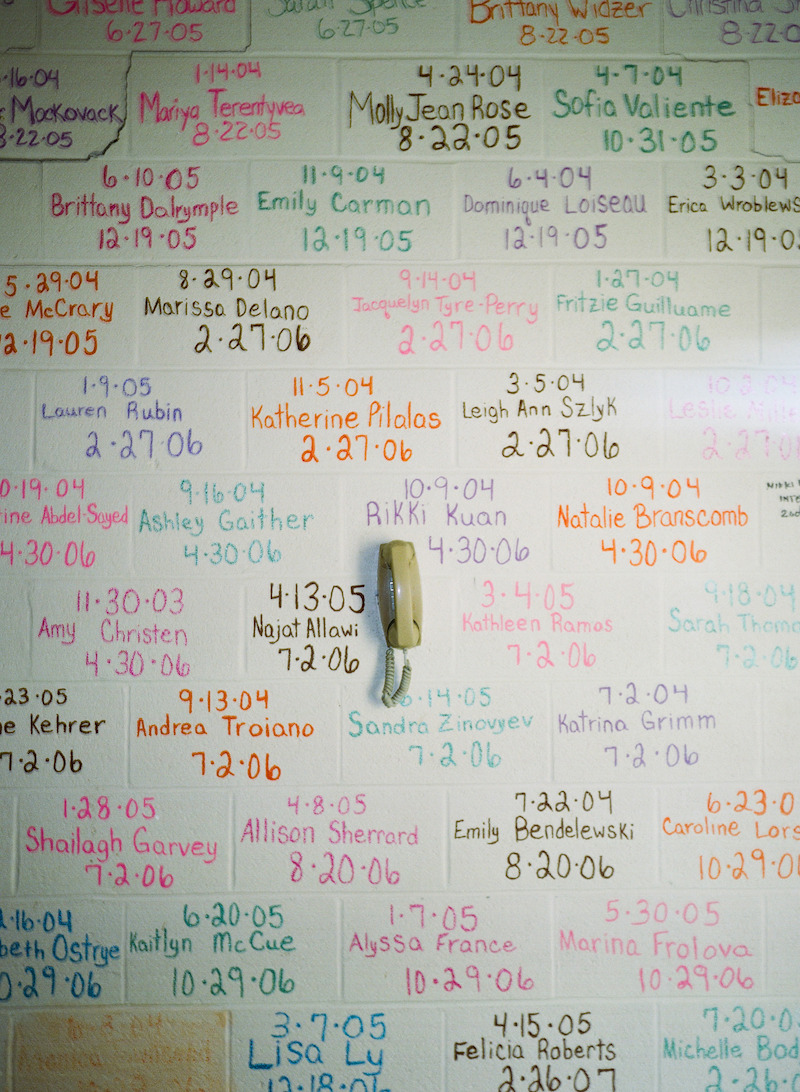 Giselle Howard
6·27·05
Sarah Spence
6·27·05
Brittany Widzer
8·22·05
Christina
8·22·0
·16·04
Mackovack
8·22·05
1·14·04
Mariya Terentyvea
8·22·05
4·24·04
Molly Jean Rose
8·22·05
4·7·04
Sofia Valiente
10·31·05
Eliza
6·10·05
Brittany Dalrymple
12·19·05
11·9·04
Emily Carman
12·19·05
6·4·04
Dominique Loiseau
12·19·05
3·3·04
Erica Wroblews
12·19·0
5·29·04
e McCrary
12·19·05
8·29·04
Marissa Delano
2·27·06
9·14·04
Jacquelyn Tyre-Perry
2·27·06
1·27·04
Fritzie Guilluame
2·27·06
1·9·05
Lauren Rubin
2·27·06
11·5·04
Katherine Pilalas
2·27·06
3·5·04
Leigh Ann Szlyk
2·27·06
10·2·04
Leslie
2·27·0
0·19·04
ine Abdel-Sayed
4·30·06
9·16·04
Ashley Gaither
4·30·06
10·9·04
Rikki Kuan
4·30·06
10·9·04
Natalie Branscomb
4·30·06
11·30·03
Amy Christen
4·30·06
4·13·05
Najat Allawi
7·2·06
3·4·05
Kathleen Ramos
7·2·06
9·18·04
Sarah Thom
7·2·06
23·05
e Kehrer
7·2·06
9·13·04
Andrea Troiano
7·2·06
6·14·05
Sandra Zinovyev
7·2·06
7·2·04
Katrina Grimm
7·2·06
1·28·05
Shailagh Garvey
7·2·06
4·8·05
Allison Sherrard
8·20·06
7·22·04
Emily Bendelewski
8·20·06
6·23·0
Caroline Lors
10·29·0
·16·04
beth Ostrye
0·29·06
6·20·05
Kaitlyn McCue
10·29·06
1·7·05
Alyssa France
10·29·06
5·30·05
Marina Frolova
10·29·06
3·7·05
Lisa Ly
12·18·06
4·15·05
Felicia Roberts
2·26·07
7·20·0
Michelle Bod
2·26·0